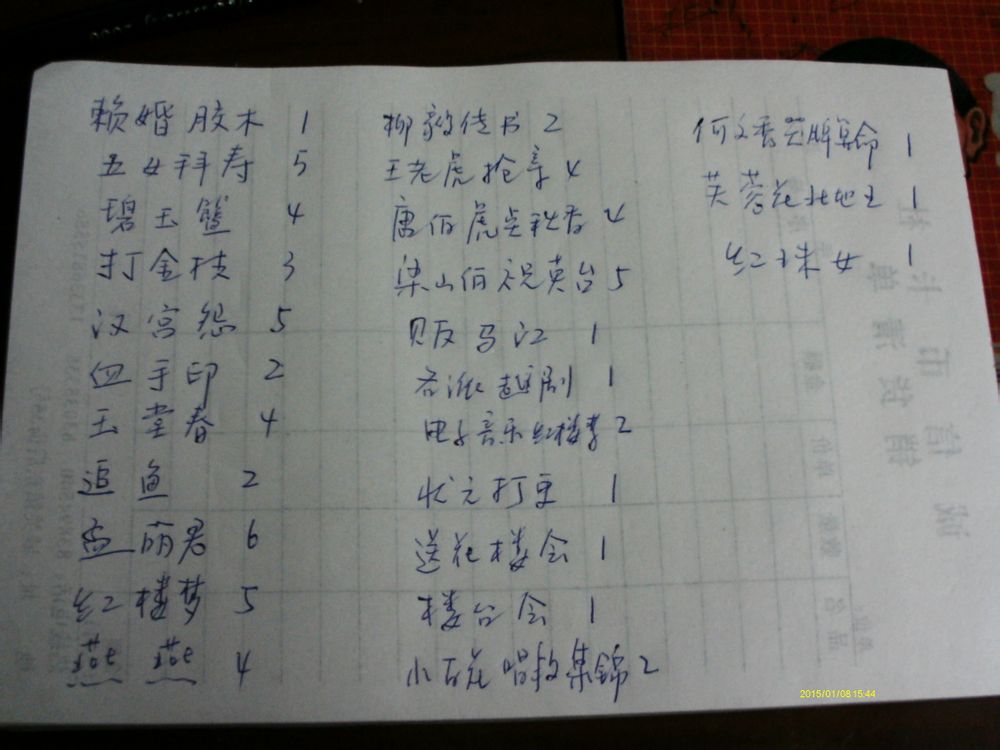 赖婚胶木 1
五女拜寿 5
碧玉簪 4
打金枝 3
汉宫怨 5
血手印 2
玉堂春 4
追鱼 2
孟丽君 6
红楼梦 5
燕燕 4
柳毅传书 2
王老虎抢亲 4
唐伯虎点秋香 4
梁山伯祝英台 5
贩马记 1
各派越剧 1
电子音乐红楼梦 2
状元打更 1
送花楼会 1
楼台会 1
小百花唱段集锦 2
何文秀 牌算命 1
芙蓉花 1
红珠女 1
2015/01/08 15:44